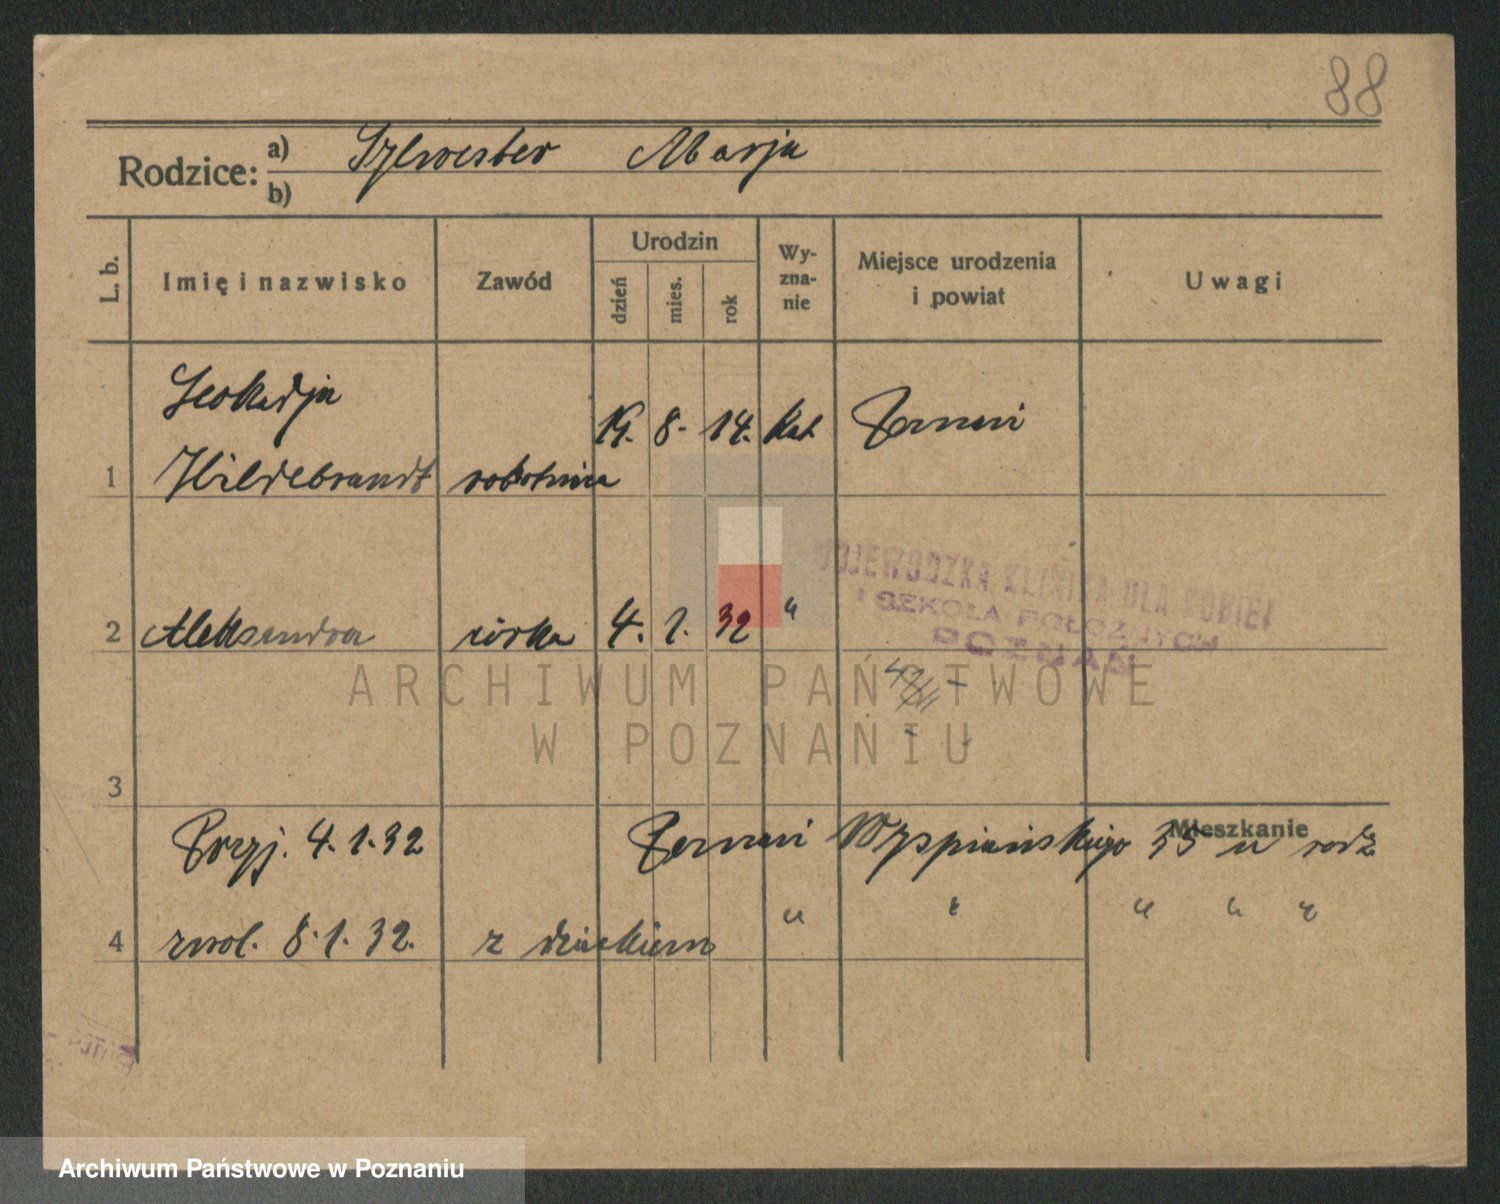 88
Rodzice: a) Sylwester Marja
b)
L. b.
Imię i nazwisko
Zawód
Urodzin
dzień
mies.
rok
Wy-
zna-
nie
Miejsce urodzenia
i powiat
Uwagi
Leokadja
Hildebrandt
1
robotnica
8. 14. kat
2 Aleksandra córka 4. 1. 32 "
WOJEWÓDZKA KLINIKA DLA KOBIET
I SZKOŁA POŁOŻNYCH
POZNAŃ
ARCHIWUM PAŃSTWOWE
W POZNANIU
3
Mieszkanie
Przyj. 4.1.32 Wyspiańskiego 35 u rodz
4 zwol. 8.1.32. z dzieckiem " " " " "
Archiwum Państwowe w Poznaniu